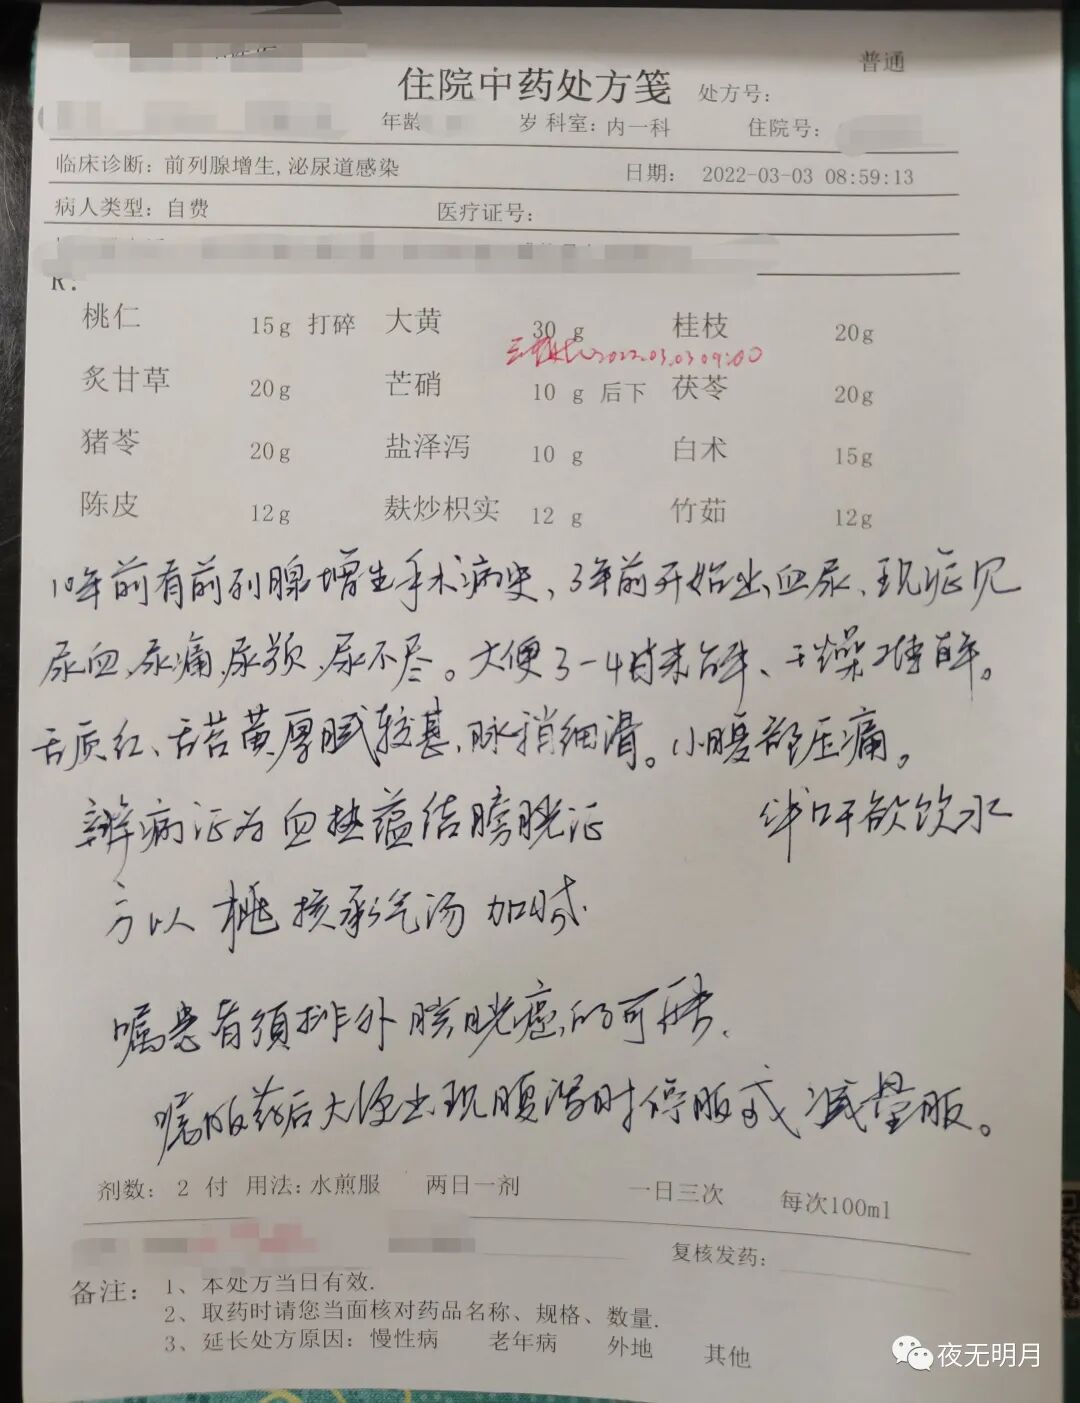 普通
住院中药处方笺 处方号：
年龄 岁 科室：内一科 住院号：
临床诊断：前列腺增生,泌尿道感染 日期： 2022-03-03 08:59:13
病人类型：自费 医疗证号：
R：
桃仁 15g 打碎 大黄 30 g 桂枝 20g
2022.03.03 09:00
炙甘草 20g 芒硝 10 g 后下 茯苓 20g
猪苓 20g 盐泽泻 10 g 白术 15g
陈皮 12g 麸炒枳实 12 g 竹茹 12g
10年前有前列腺增生手术病史、3年前开始出血尿、现症见
尿血、尿痛、尿频、尿不尽。大便3-4日未解、干燥难解。
舌质红、舌苔黄厚腻较甚、脉稍细滑。小腹部压痛。
辨病证为血热蕴结膀胱证 伴口干欲饮水
方以桃核承气汤加减.
嘱患者须排外膀胱癌的可能.
嘱服药后大便出现腹泻时停服或减量服。
剂数： 2 付 用法：水煎服 两日一剂 一日三次 每次100ml
复核发药：
备注： 1、本处方当日有效.
2、取药时请您当面核对药品名称、规格、数量.
3、延长处方原因：慢性病 老年病 外地 其他
夜无明月